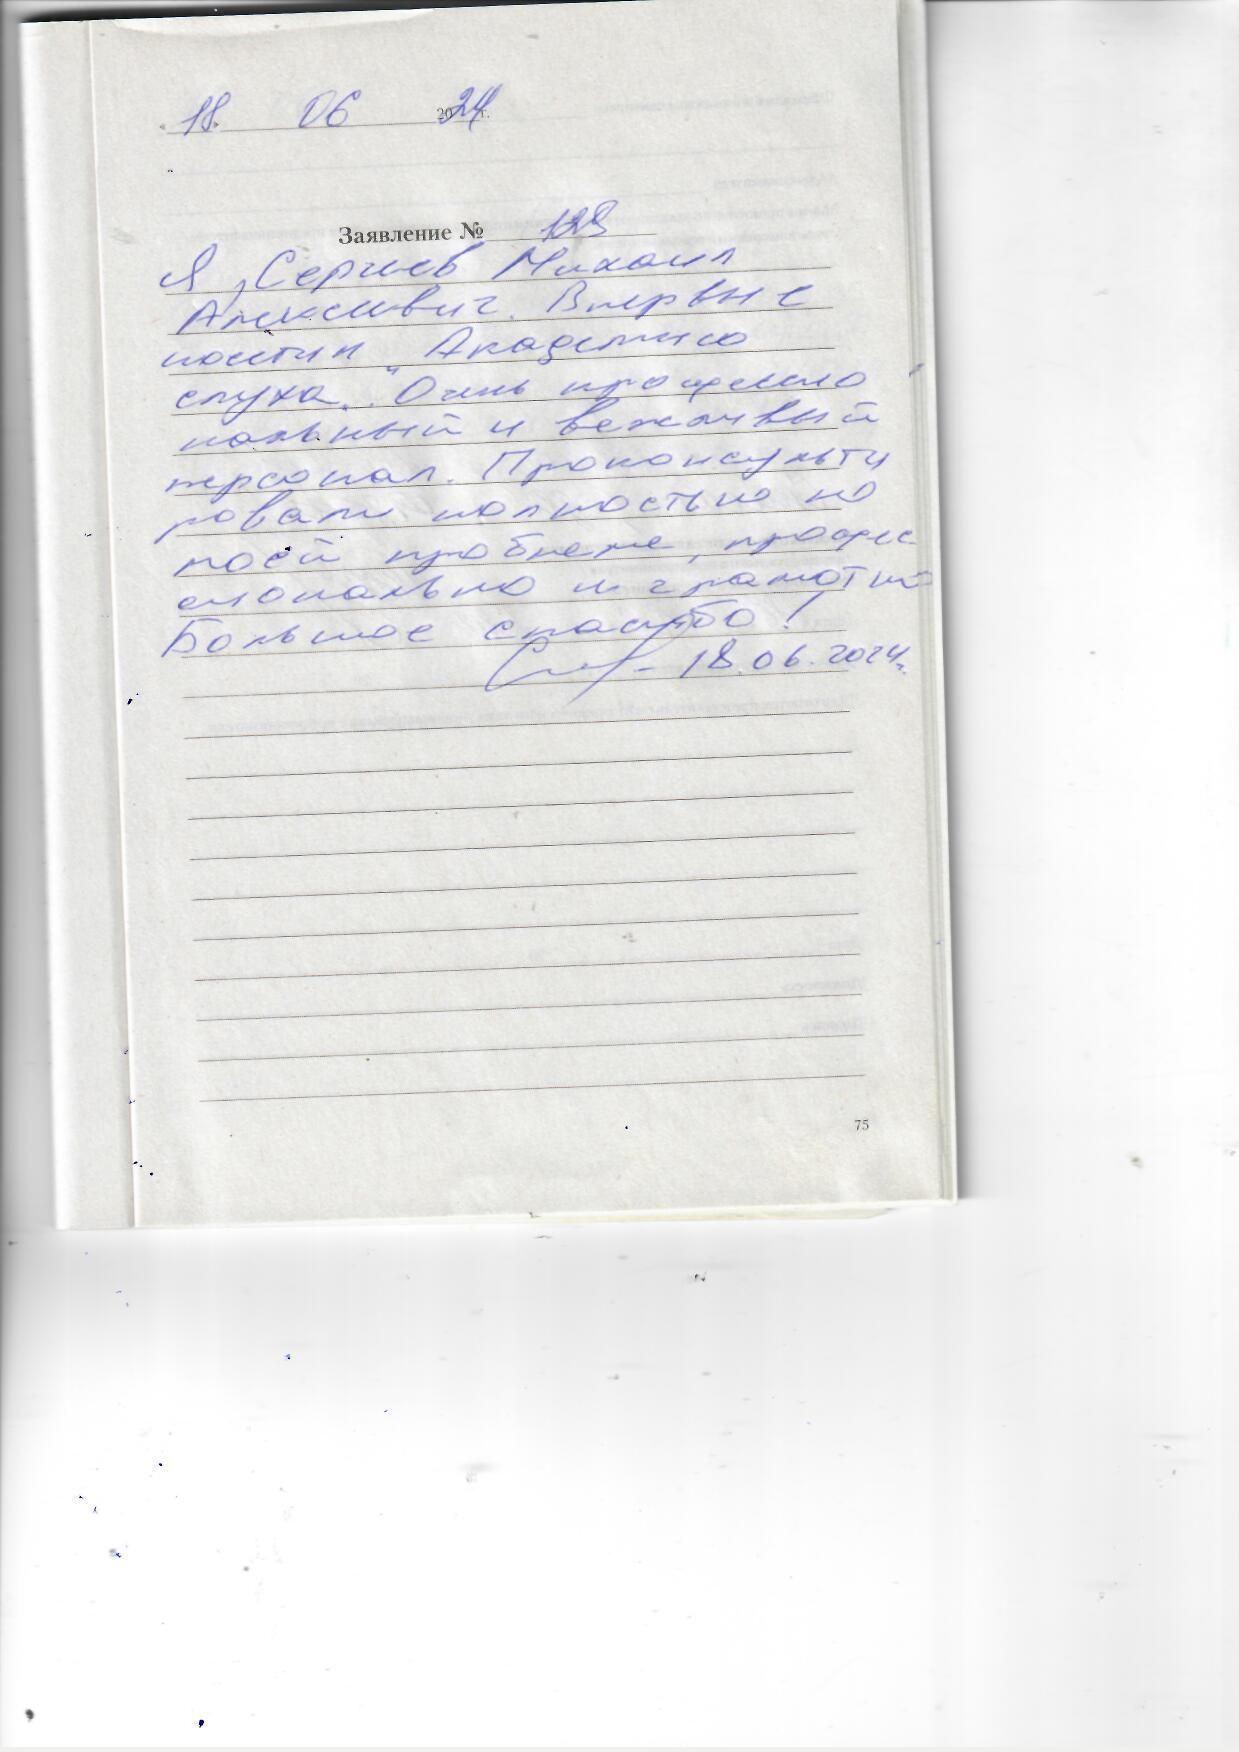 18. 06 2024 г.
Заявление № 123
Я, Сергиев Михаил
Алексеевич. Впервые
посетил Академию
слуха. Очень профессио
нальный и вежливый
персонал. Проконсульти
ровали полностью по
моей проблеме, профес
сионально и грамотно
Большое спасибо!
18.06.2024г.
75